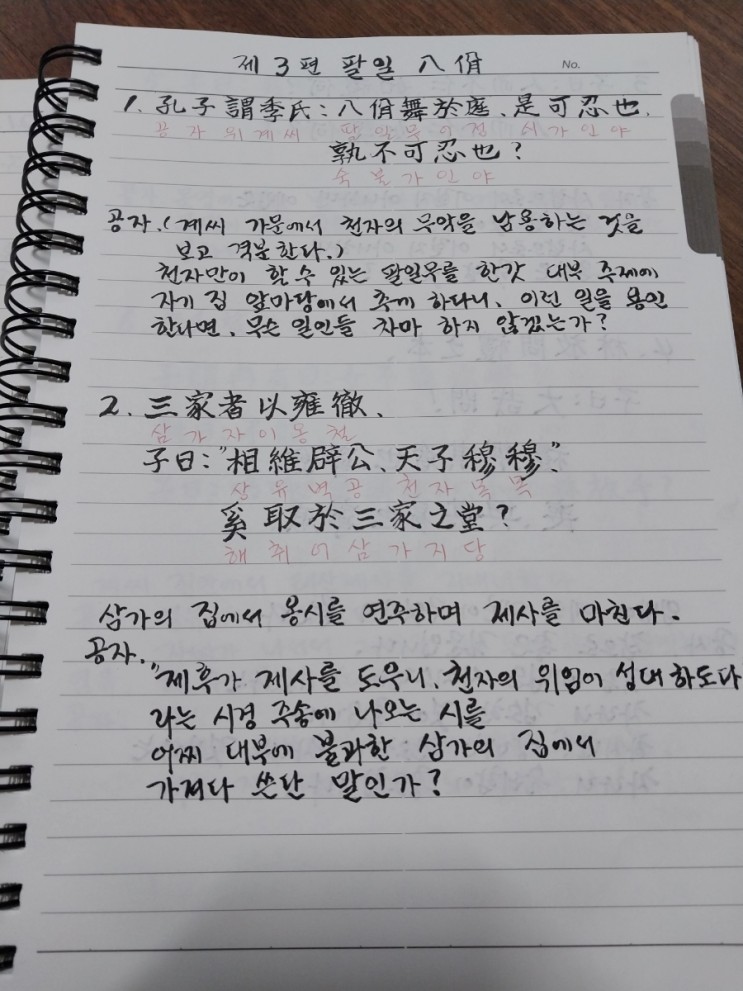 제 3 편 팔일 八佾
No.
1. 孔子謂季氏: 八佾舞於庭、是可忍也、
공자위계씨 팔일무어정 시가인야
孰不可忍也?
숙불가인야
공자.(계씨 가문에서 천자의 무악을 남용하는 것을
보고 격분한다.)
천자만이 할 수 있는 팔일무를 한갓 대부 주제에
자기 집 앞마당에서 추게 하다니, 이런 일을 용인
한다면, 무슨 일인들 차마 하지 않겠는가?
2. 三家者以雍徹、
삼가자이옹철
子曰: "相維辟公、天子穆穆".
상유벽공 천자목목
奚取於三家之堂?
해취어삼가지당
삼가의 집에서 옹시를 연주하며 제사를 마친다.
공자.
"제후가 제사를 도우니, 천자의 위엄이 성대하도다
라는 시경 주송에 나오는 시를
어찌 대부에 불과한 삼가의 집에서
가져다 쓴단 말인가?